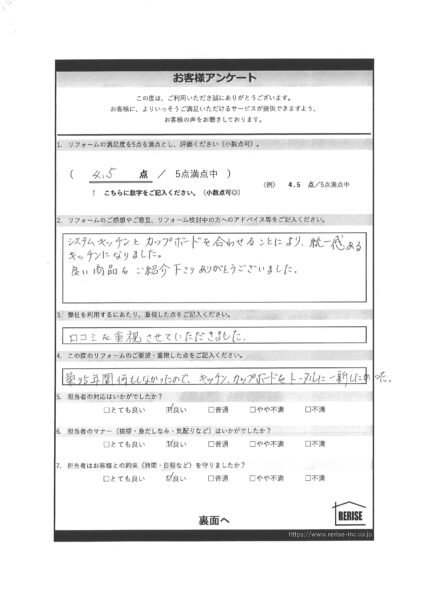 お客様アンケート
この度は、ご利用いただき誠にありがとうございます。
お客様に、よりいっそうご満足いただけるサービスが提供できますよう、
お客様の声をお聞きしております。
1. リフォームの満足度を5点を満点とし、評価ください（小数点可）。
（ 4.5 点 / 5点満点中 ）
↑ こちらに数字をご記入ください。（小数点可◎）
〈例〉 4.5 点 / 5点満点中
2. リフォームのご感想やご意見、リフォーム検討中の方へのアドバイス等をご記入ください。
システムキッチンとカップボードを合わせることにより、統一感ある
キッチンになりました。
良い商品をご紹介下さりありがとうございました。
3. 弊社を利用するにあたり、重視した点をご記入ください。
口コミを重視させていただきました。
4. この度のリフォームのご要望・重視した点をご記入ください。
築35年間何もしなかったので、キッチン、カップボードをトータルに一新したかった。
5. 担当者の対応はいかがでしたか？
□とても良い ☑良い □普通 □やや不満 □不満
6. 担当者のマナー（挨拶・身だしなみ・気配りなど）はいかがでしたか？
□とても良い ☑良い □普通 □やや不満 □不満
7. 担当者はお客様との約束（時間・日程など）を守りましたか？
□とても良い ☑良い □普通 □やや不満 □不満
裏面へ
RERISE
https://www.rerise-inc.co.jp